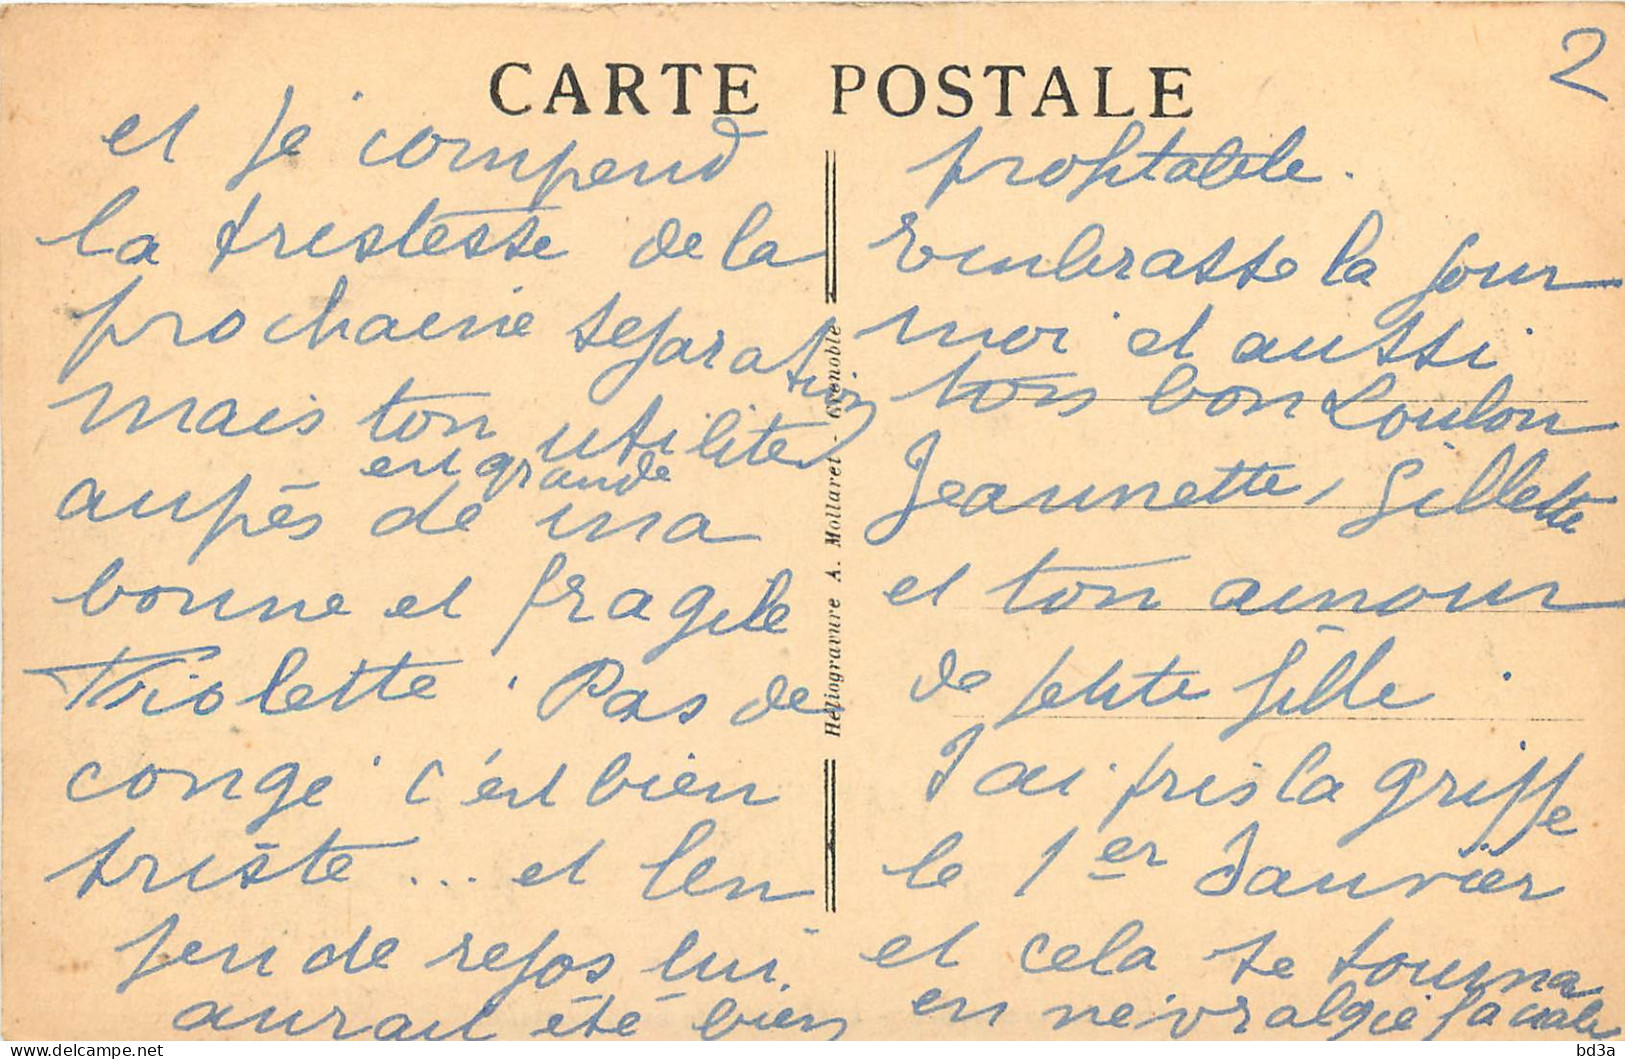 CARTE POSTALE
2
et je compend
la tristesse de la
prochaine separation
mais ton utilite
est grande
aupès de ma
bonne et fragile
Violette. Pas de
congé c'est bien
triste... et un
peu de repos lui
aurait été bien
Héliogravure A. Mollaret - Grenoble
profitable.
Embrasse la pour
moi et aussi
ton bon Loulou
Jeannette, Gillette
et ton amour
de petite fille.
J'ai pris la griffe
le 1er Janvier
et cela se tourna
en névralgie faciale
delcampe.net
bd3a